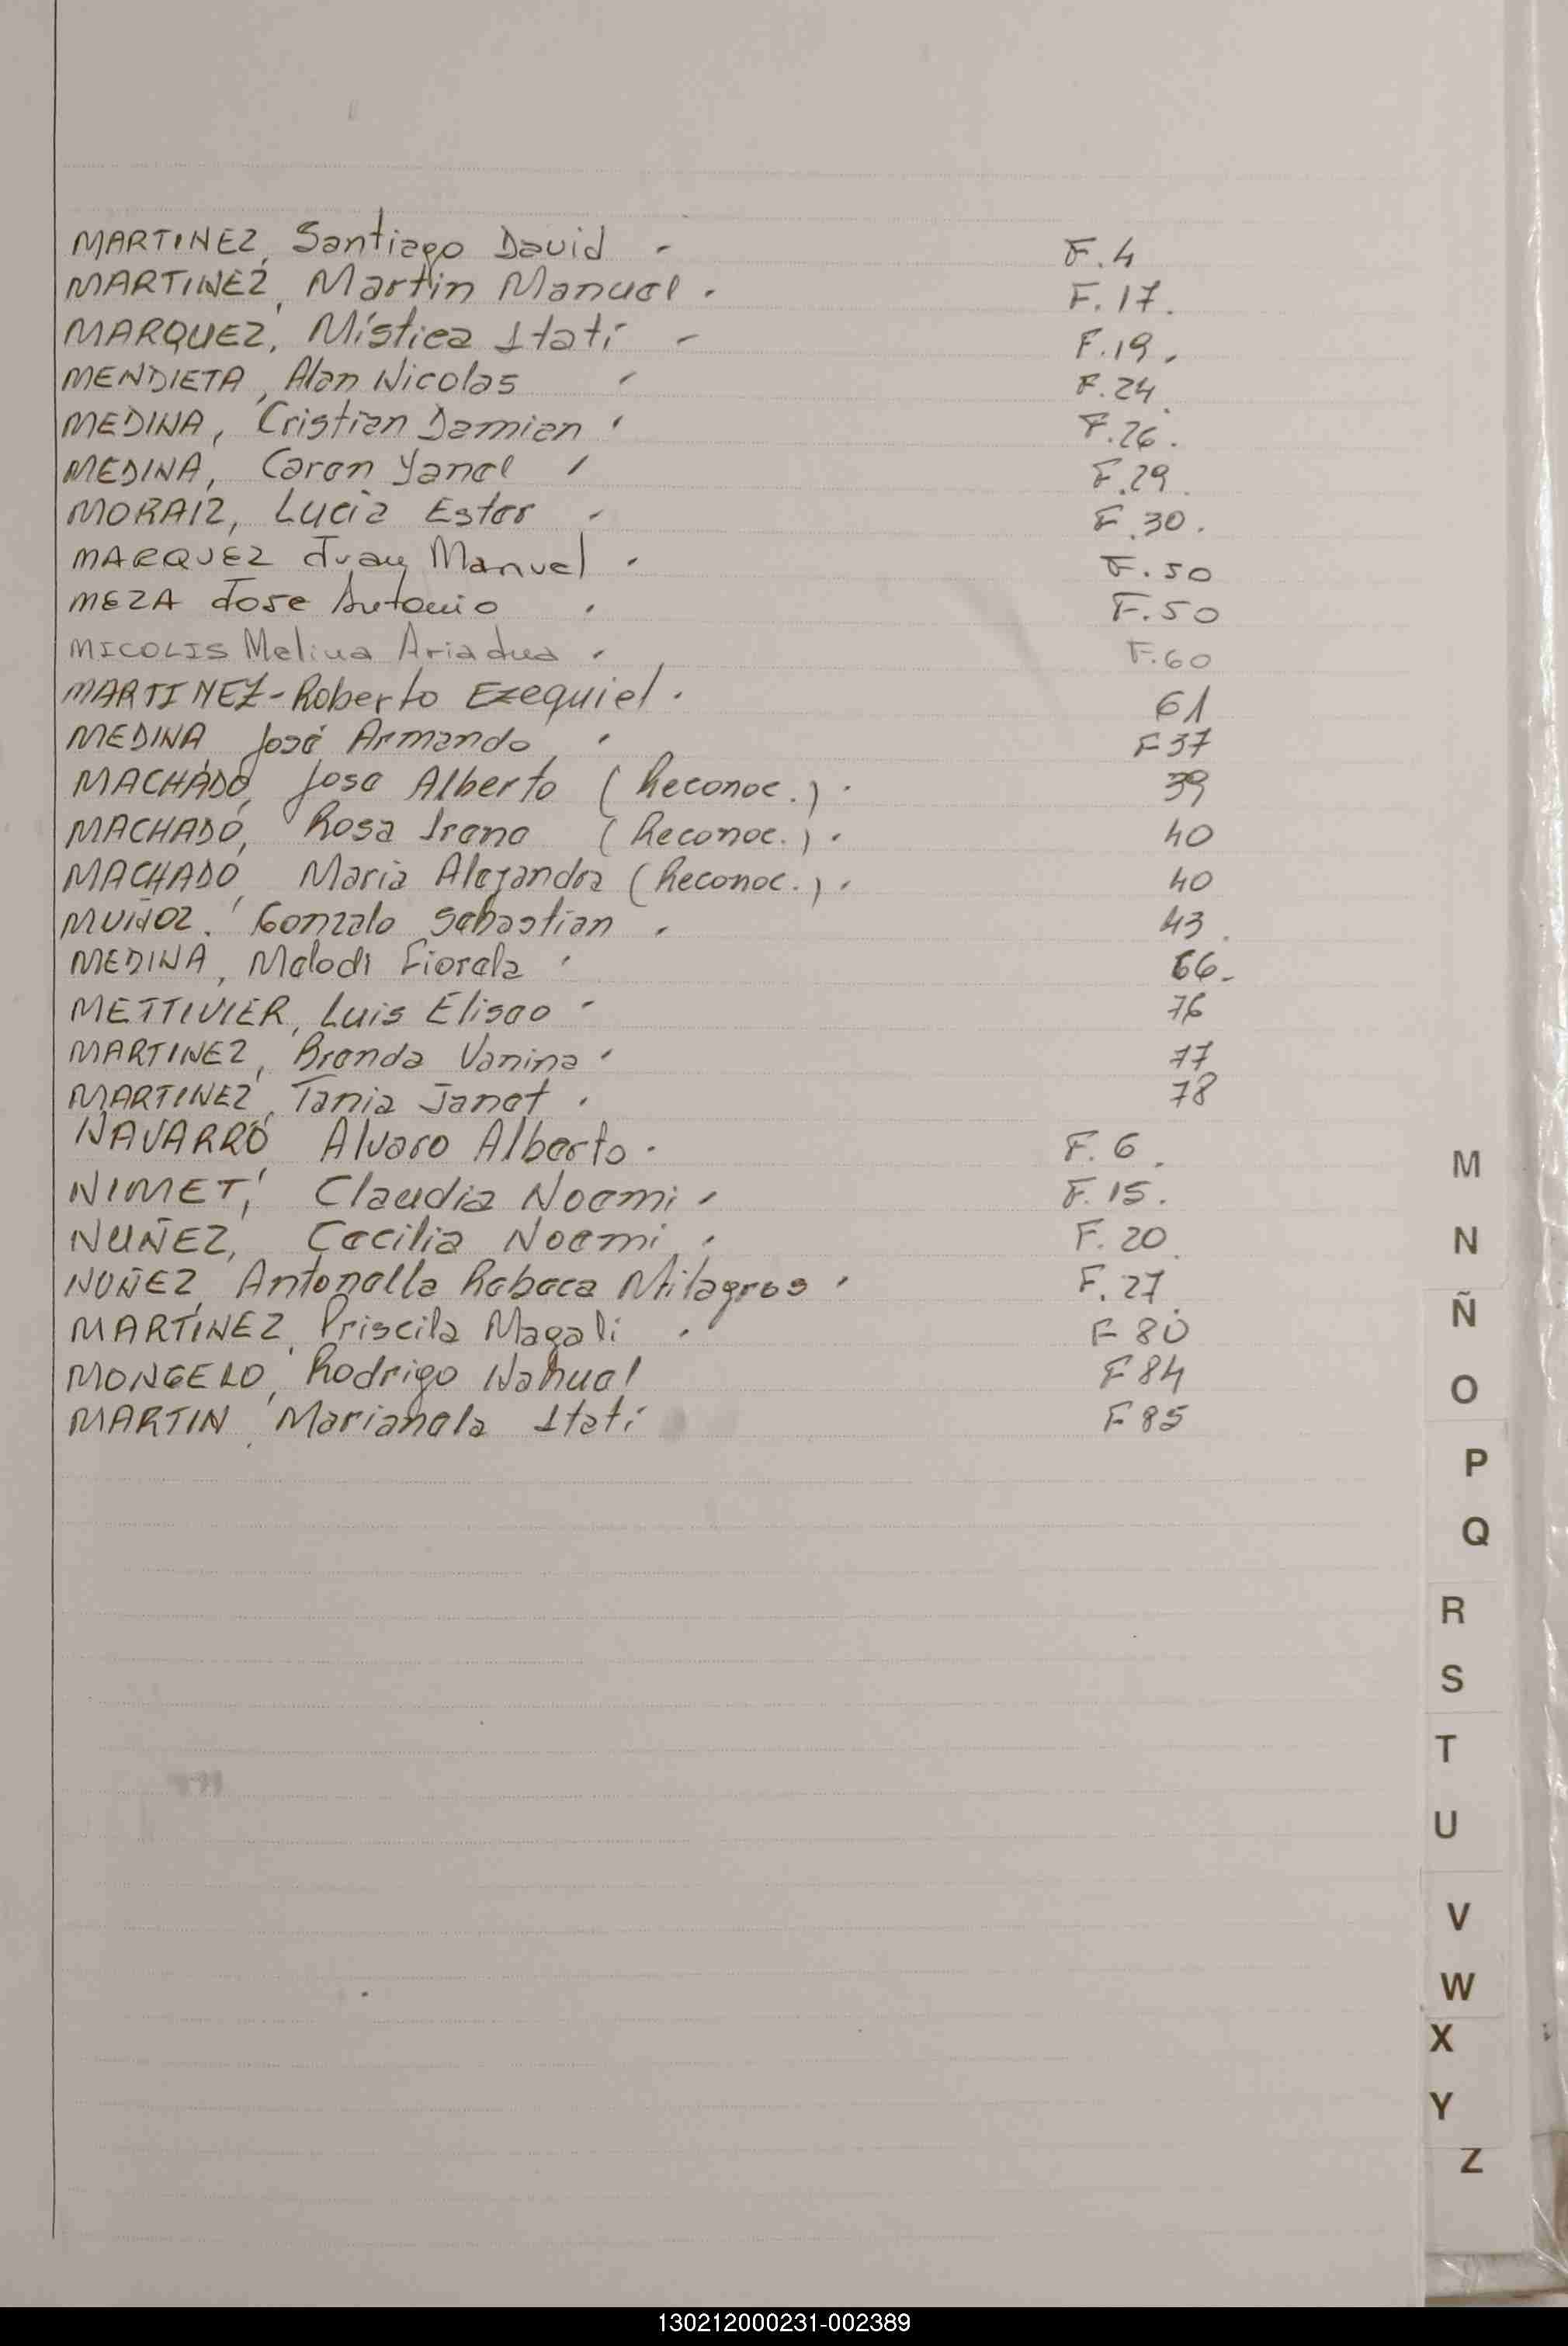 MARTINEZ, Santiago David - F. 4
MARTINEZ, Martin Manuel. F. 17.
MARQUEZ, Mística Itatí - F. 19.
MENDIETA, Alan Nicolas F. 24.
MEDINA, Cristian Damian F. 26.
MEDINA, Caren Yanel F. 29.
MORAIZ, Lucia Ester F. 30.
MARQUEZ Juan Manuel F. 50
MEZA Jose Antonio F. 50
MICOLIS Melina Ariadna F. 60
MARTINEZ - Roberto Ezequiel. 61
MEDINA José Armando F 37
MACHADO, Jose Alberto (Reconoc.). 39
MACHADO, Rosa Irene (Reconoc.). 40
MACHADO, Maria Alejandra (Reconoc.). 40
MUÑOZ, Gonzalo Sebastian 43.
MEDINA, Melodi Fiorela 66.-
METTIVIER, Luis Eliseo 76
MARTINEZ, Brenda Vanina 77
MARTINEZ, Tania Janet. 78
NAVARRO, Alvaro Alberto. F. 6.
NIMET, Claudia Noemi F. 15.
NUÑEZ, Cecilia Noemi F. 20.
NUÑEZ, Antonella Rebeca Milagros F. 27.
MARTINEZ, Priscila Magali F 80
MONGELO, Rodrigo Nahuel F 84
MARTIN, Marianela Itati F 85
M
N
Ñ
O
P
Q
R
S
T
U
V
W
X
Y
Z
130212000231-002389